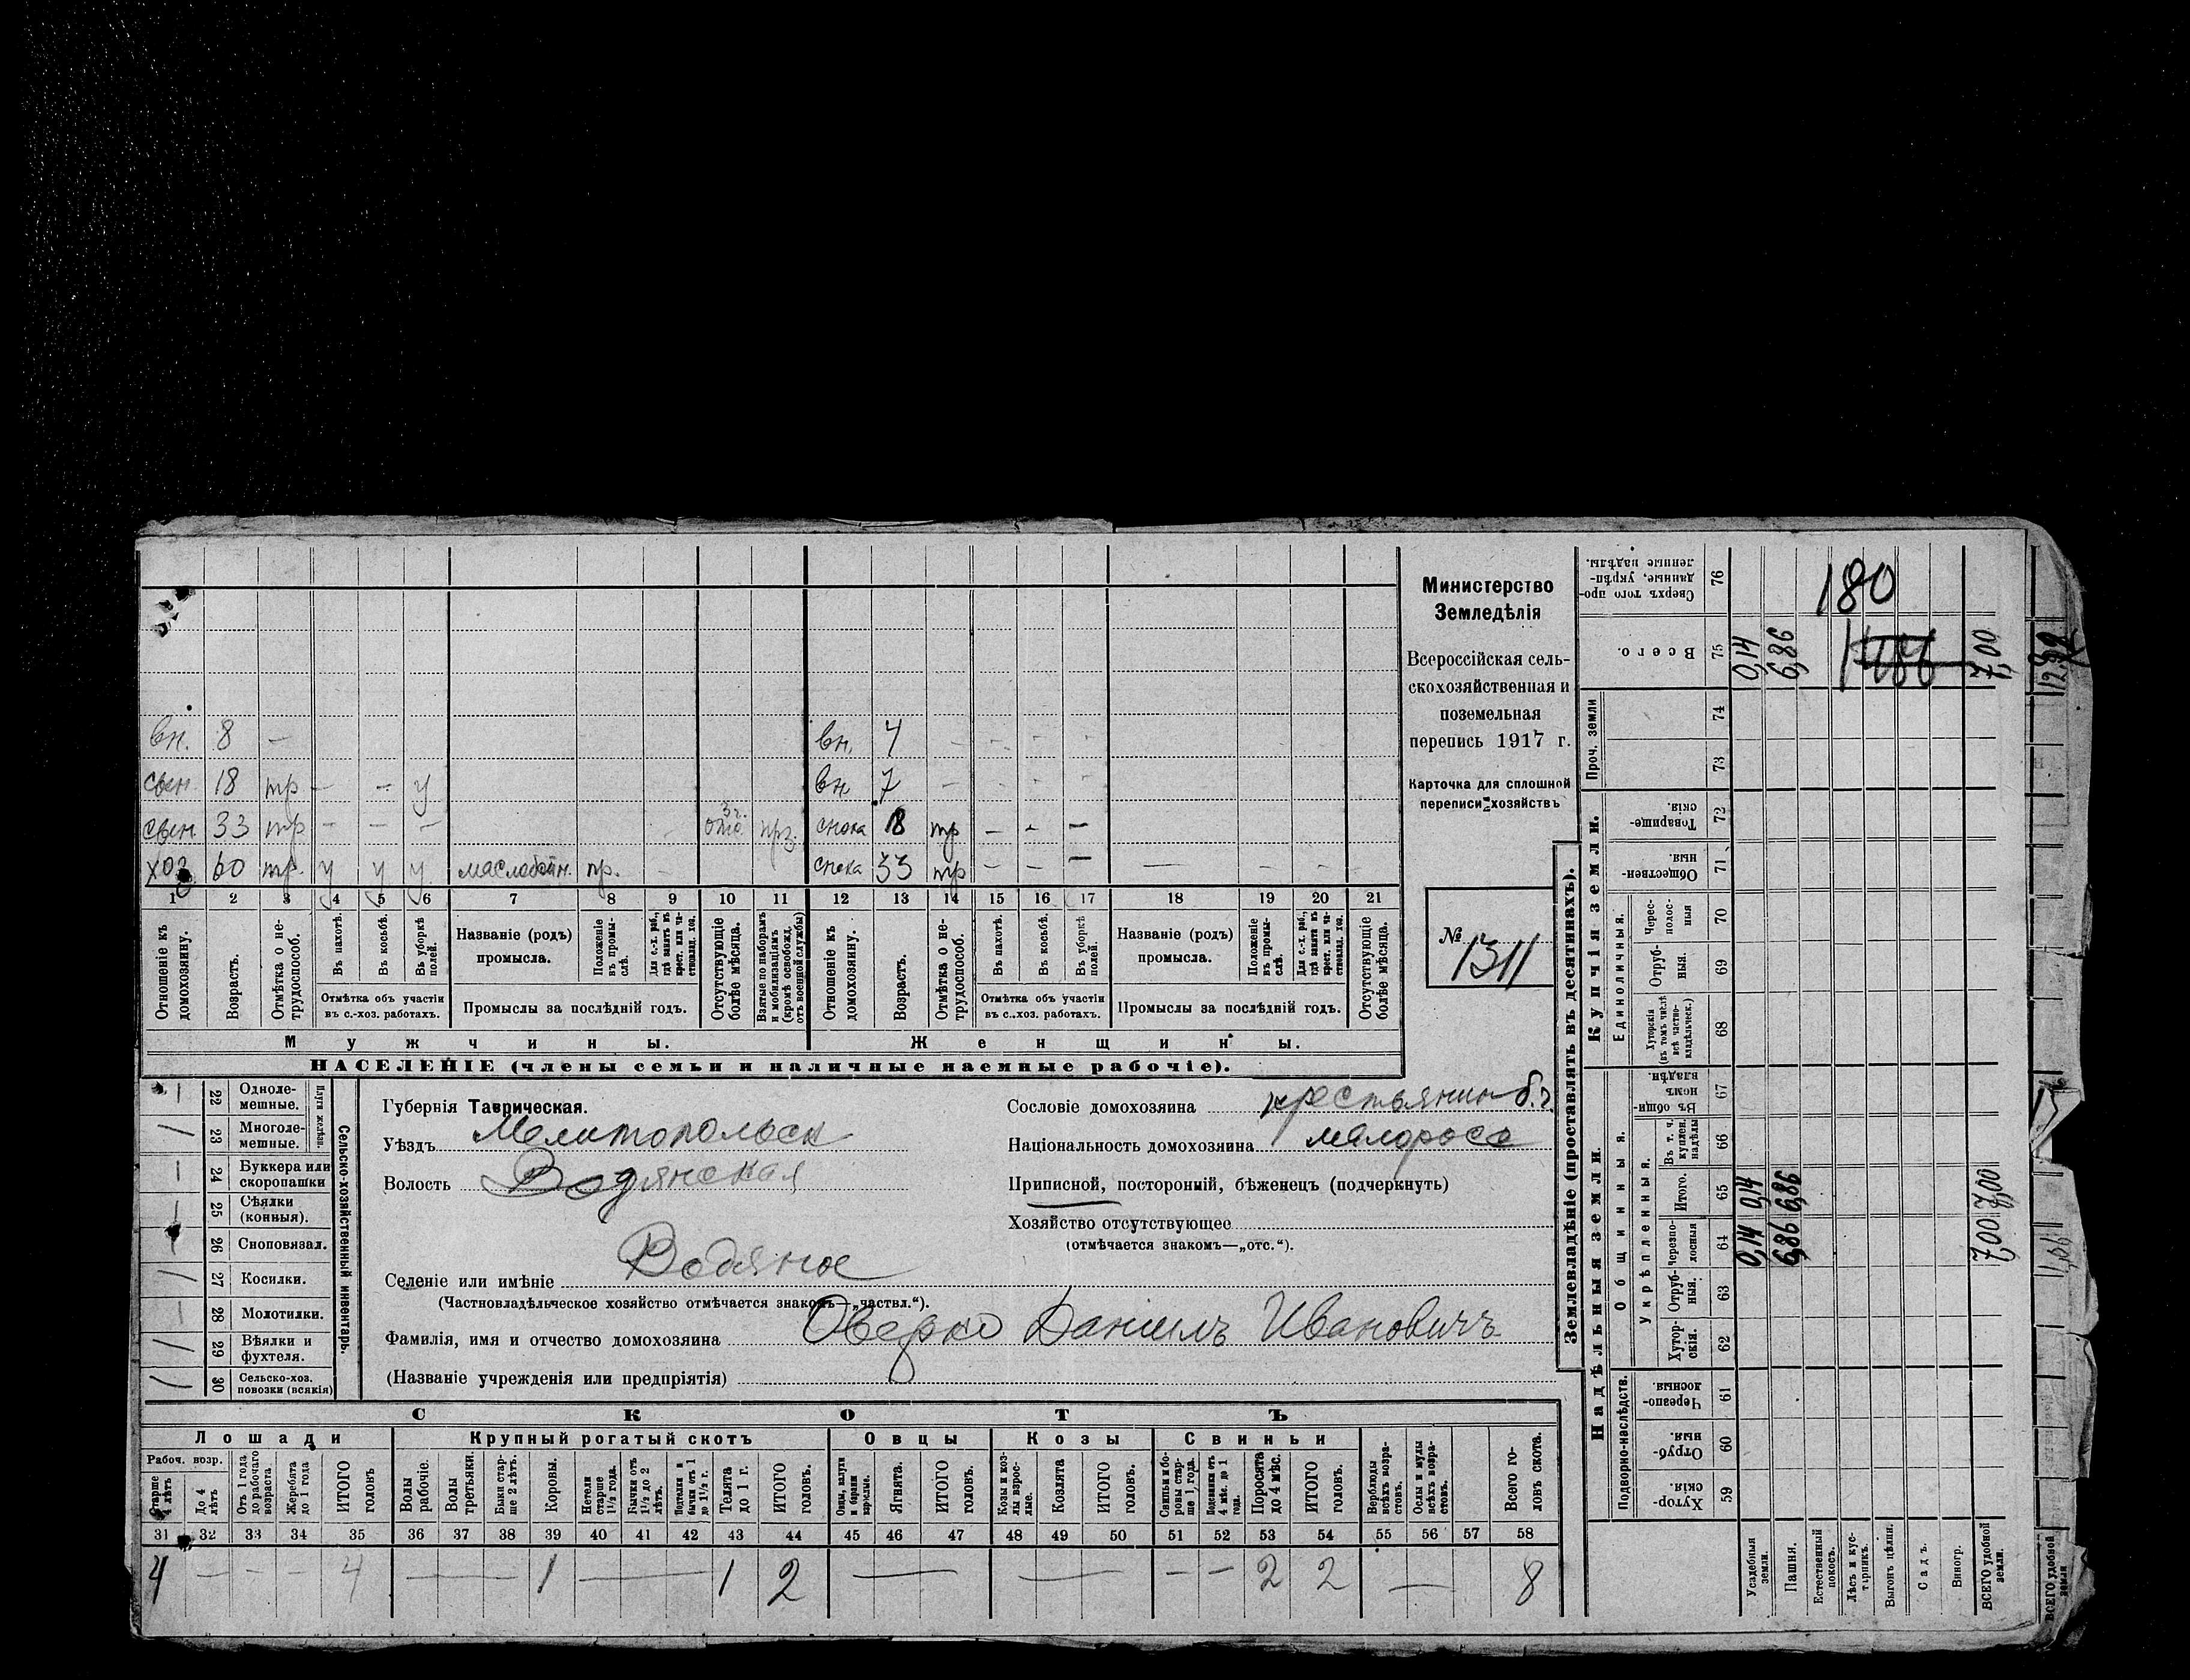 вн. 8 — вн. 4 — — — —
свен. 18 тр — — у вн 7 — — — —
свен. 33 тр — — — 3 г. отс. прз. снока 18 тр — — —
хоз 60 тр. у у у маслобойн. пр. — снока 33 тр — — — — — —
1 2 3 4 5 6 7 8 9 10 11 12 13 14 15 16 17 18 19 20 21
Отношеніе къ домохозяину.
Возрастъ.
Отмѣтка о нетрудоспособ.
Въ пахотѣ.
Въ косьбѣ.
Въ уборкѣ полей.
Отмѣтка объ участіи
въ с.-хоз. работахъ.
Названіе (родъ)
промысла.
Положеніе въ промыслѣ.
Для с.-х. раб., гдѣ занятъ въ крест. или частновлад. хоз.
Промыслы за послѣдній годъ.
Отсутствующіе болѣе мѣсяца.
Взятые по наборамъ и мобилизаціямъ (кромѣ освобожд. отъ военной службы)
Отношеніе къ домохозяину.
Возрастъ.
Отмѣтка о нетрудоспособ.
Въ пахотѣ.
Въ косьбѣ.
Въ уборкѣ полей.
Отмѣтка объ участіи
въ с.-хоз. работахъ.
Названіе (родъ)
промысла.
Положеніе въ промыслѣ.
Для с.-х. раб., гдѣ занятъ въ крест. или частновлад. хоз.
Промыслы за послѣдній годъ.
Отсутствующіе болѣе мѣсяца.
Мужчины. Женщины.
НАСЕЛЕНІЕ (члены семьи и наличные наемные рабочіе).
Министерство
Земледѣлія
Всероссійская сель-
скохозяйственная и
поземельная
перепись 1917 г.
Карточка для сплошной
переписи хозяйствъ
№ 1311
Сельско-хозяйственный инвентарь.
Плуги желѣзн.
1 22 Одноле-
мешные.
/ 23 Многоле-
мешные.
24 Буккера или
скоропашки
25 Сѣялки
(конныя).
26 Сноповязал.
27 Косилки.
28 Молотилки.
29 Вѣялки и
фухтеля.
30 Сельско-хоз.
повозки (всякія)
Губернія Таврическая.
Уѣздъ Мелитопольск
Волость Водянская
Селеніе или имѣніе Водяное
(Частновладѣльческое хозяйство отмѣчается знакомъ—„частвл.“).
Фамилія, имя и отчество домохозяина Оверко Даніилъ Ивановичъ
(Названіе учрежденія или предпріятія)
Сословіе домохозяина крестьянин б.г.
Національность домохозяина малоросс
Приписной, посторонній, бѣженец (подчеркнуть)
Хозяйство отсутствующее
(отмѣчается знакомъ—„отс.“).
СКОТЪ
Лошади Крупный рогатый скотъ Овцы Козы Свиньи
Рабоч. возр.
Старше 4 лѣтъ
До 4 лѣтъ
Отъ 1 года до рабочаго возраста
Жеребята до 1 года
ИТОГО головъ
Волы рабочіе.
Волы третьяки.
Быки старше 2 лѣтъ.
Коровы.
Нетели старше 1½ года.
Бычки отъ 1½ до 2 лѣтъ.
Нетели и бычки отъ 1 до 1½ г.
Телята до 1 г.
ИТОГО головъ.
Овцы, валухи и бараны взрослые.
Ягнята.
ИТОГО головъ.
Козы и козлы взрослые.
Козлята
ИТОГО головъ.
Свиньи и боровы старше 1 года.
Подсвинки отъ 4 мѣс. до 1 года.
Поросята до 4 мѣс.
ИТОГО головъ.
Верблюды всѣхъ возрастовъ.
Ослы и мулы всѣхъ возрастовъ.
Всего головъ скота.
31 32 33 34 35 36 37 38 39 40 41 42 43 44 45 46 47 48 49 50 51 52 53 54 55 56 57 58
4 — — — 4 — 1 — 1 2 — — — — 2 2 — 8
Землевладѣніе (проставлять въ десятинахъ).
Сверхъ того проданные, укрѣпленные надѣлы. 76 180
Всего. 75 0,14 6,86 7,00 12,98
Проч. земли 74
73
Купчія земли.
Товарищескія. 72
Общественныя. 71
Единоличныя.
Чересполосныя 70
Отрубныя. 69
Хуторскія (въ томъ числѣ всѣ частновладѣльческ.) 68
Надѣльныя земли.
Общинныя.
Въ общинномъ владѣн. 67
Укрѣпленныя.
Въ т. ч. куплен. надѣлы 66
Итого. 65 0,14 6,86 7,00
Черезполосныя 64 0,14 6,86 7,00
Отрубныя. 63
Хуторскія. 62
Подворно-наслѣдств.
Черезполосныя 61
Отрубныя. 60
Хуторскія 59
Усадебныя земли.
Пашня.
Естественный покосъ.
Лѣсъ и кустарникъ.
Выгонъ цѣлин.
Садъ.
Виногр.
ВСЕГО удобной земли.
ВСЕГО удобной земли